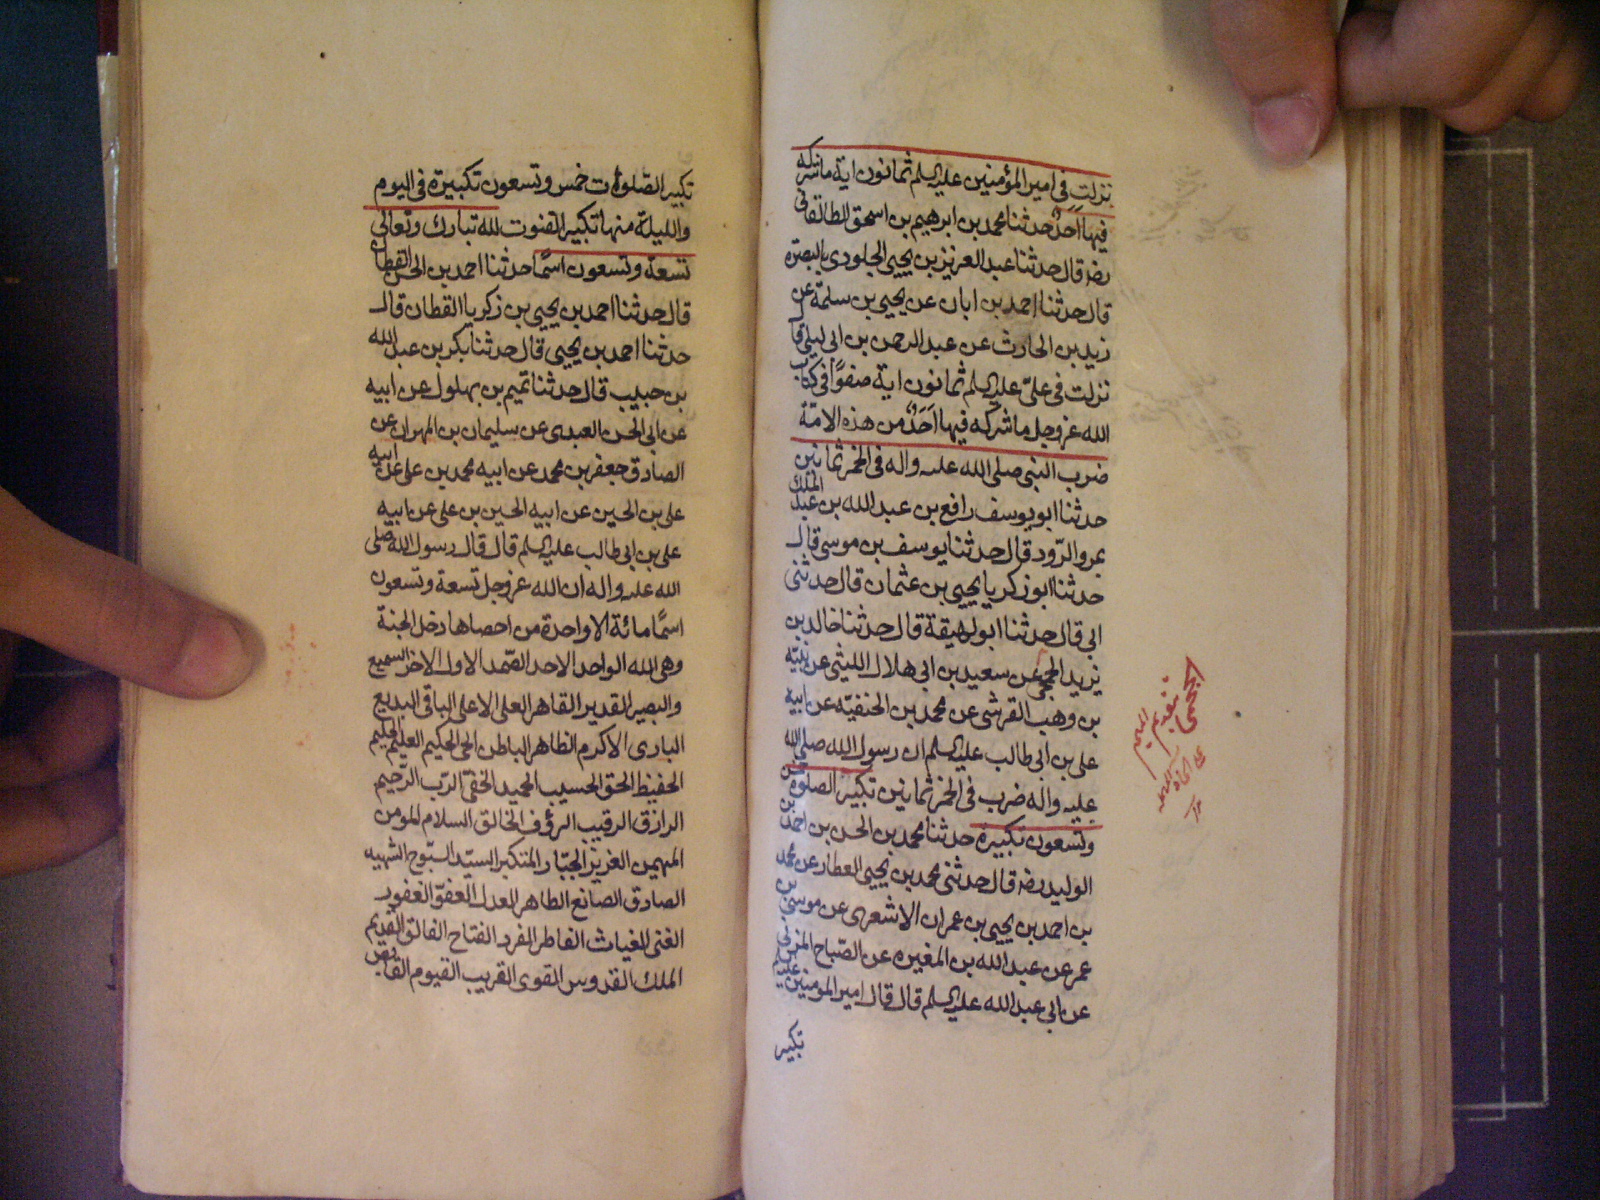 نزلت في امير المؤمنين عليه السلم ثمانون اية ما شركه
فيها احد حدثنا محمد بن ابرهيم بن اسحق الطالقاني
رضه قال حدثنا عبد العزيز بن يحيى الجلودي بالبصرة
قال حدثنا احمد بن ابان عن يحيى بن سلمة عن
زيد بن الحارث عن عبد الرحمن بن ابي ليلى قال
نزلت في علي عليه السلم ثمانون اية صفوا في كتاب
الله عز وجل ما شركه فيها احد من هذه الامة
ضرب النبي صلى الله عليه واله في الخمر ثمانين
حدثنا ابو يوسف رافع بن عبد الله بن عبد الملك
بمرو الرود قال حدثنا يوسف بن موسى قال
حدثنا ابو زكريا يحيى بن عثمان قال حدثني
ابي قال حدثنا ابو لهيقة قال حدثنا خالد بن
يزيد الجمحي عن سعيد بن ابي هلال الليثي عن نبيه
بن وهب القرشي عن محمد بن الحنفيه عن ابيه
علي بن ابي طالب عليه السلم ان رسول الله صلى الله
عليه واله ضرب في الخمر ثمانين تكبير الصلوة خمس
وتسعون تكبيرة حدثنا محمد بن الحسن بن احمد بن
الوليد رضه قال حدثني محمد بن يحيى العطار عن محمد
بن احمد بن يحيى بن عمران الاشعري عن موسى بن
عمر عن عبد الله بن المغيره عن الصباح المزني
عن ابي عبد الله عليه السلم قال قال امير المومنين عليه السلم
تكبير
الجمحي
بتقديم
الجيم
تكبير الصلوات خمس وتسعون تكبيرة في اليوم
والليلة منها تكبير القنوت لله تبارك وتعالى
تسعة وتسعون اسما حدثنا احمد بن الحسن القطان
قال حدثنا احمد بن يحيى بن زكريا القطان قال
حدثنا احمد بن يحيى قال حدثنا بكر بن عبد الله
بن حبيب قال حدثنا تميم بن بهلول عن ابيه
عن ابي الحسن العبدي عن سليمان بن المهران عن
الصادق جعفر بن محمد عن ابيه محمد بن علي عن ابيه
علي بن الحسين عن ابيه الحسين بن علي عن ابيه
علي بن ابي طالب عليه السلم قال قال رسول الله صلى
الله عليه واله ان الله عز وجل تسعة وتسعون
اسما مائة الا واحدة من احصاها دخل الجنة
وهي الله الواحد الاحد الصمد الاول الاخر السميع
والبصير القدير القاهر العلي الاعلى الباقي البديع
البارئ الاكرم الظاهر الباطن الحي الحكيم العليم الحليم
الحفيظ الحق الحسيب الحميد الحفي الرب الرحيم
الرازق الرقيب الرؤف الخالق السلام المومن
المهيمن العزيز الجبار المتكبر السيد السبوح الشهيد
الصادق الصانع الطاهر العدل العفو الغفور
الغني الغياث الفاطر الفرد الفتاح الفالق القديم
الملك القدوس القوى القريب القيوم القابض